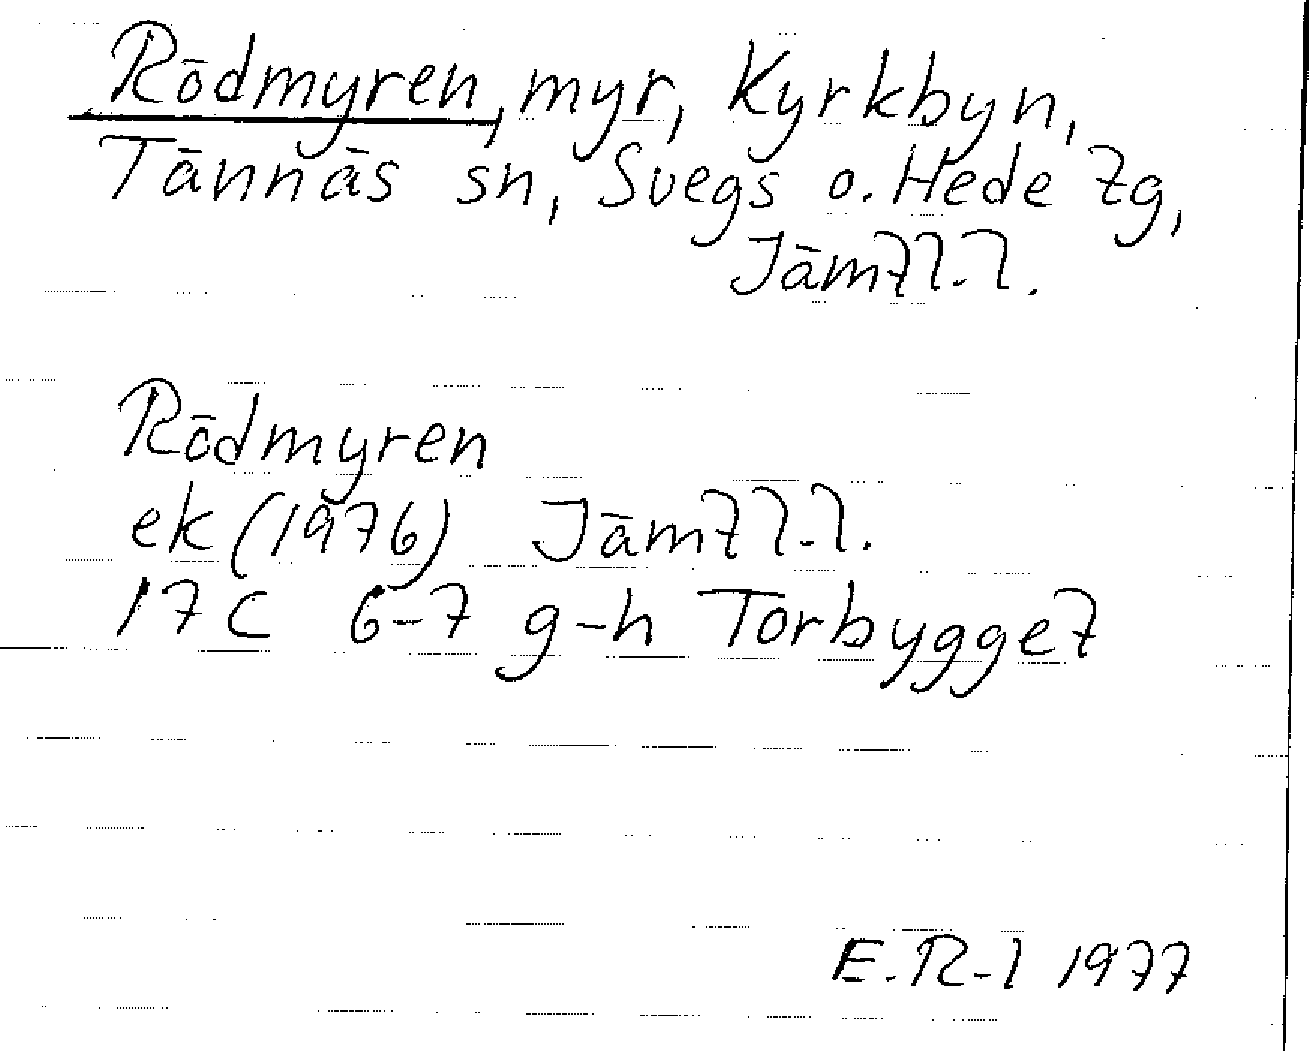 Rödmyren, myr, Kyrkbyn,
Tännäs sn, Svegs o. Hede tg,
Jämtl.l.
Rödmyren
ek (1976) Jämtl.l.
17C 6-7 g-h Torbygget
E.R-l 1977